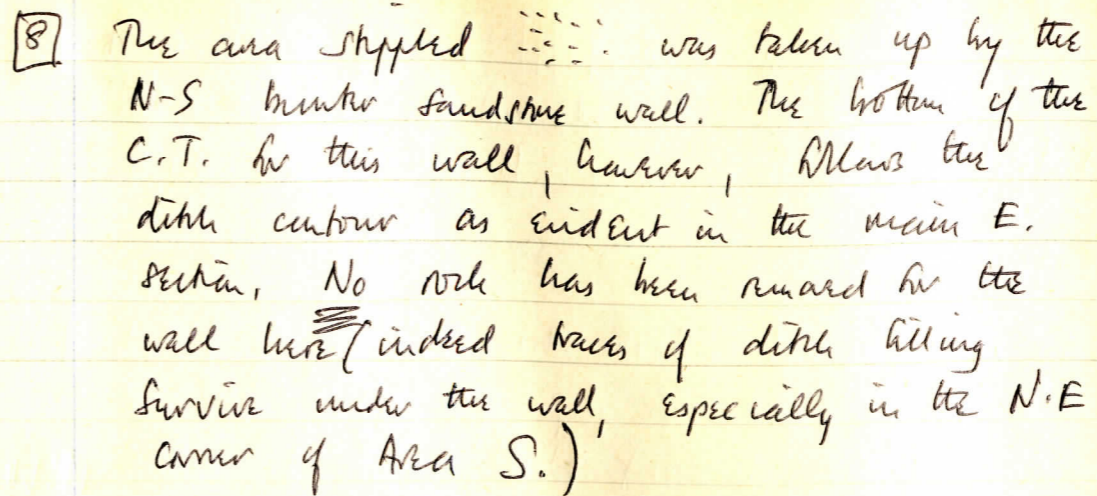 [8] The area stippled was taken up by the
N-S bunter sandstone wall. The bottom of the
C.T. for this wall, however, follows the
ditch contour as evident in the main E.
section. No rock has been removed for the
wall here (indeed traces of ditch filling
survive under the wall, especially in the N.E
corner of Area S.)